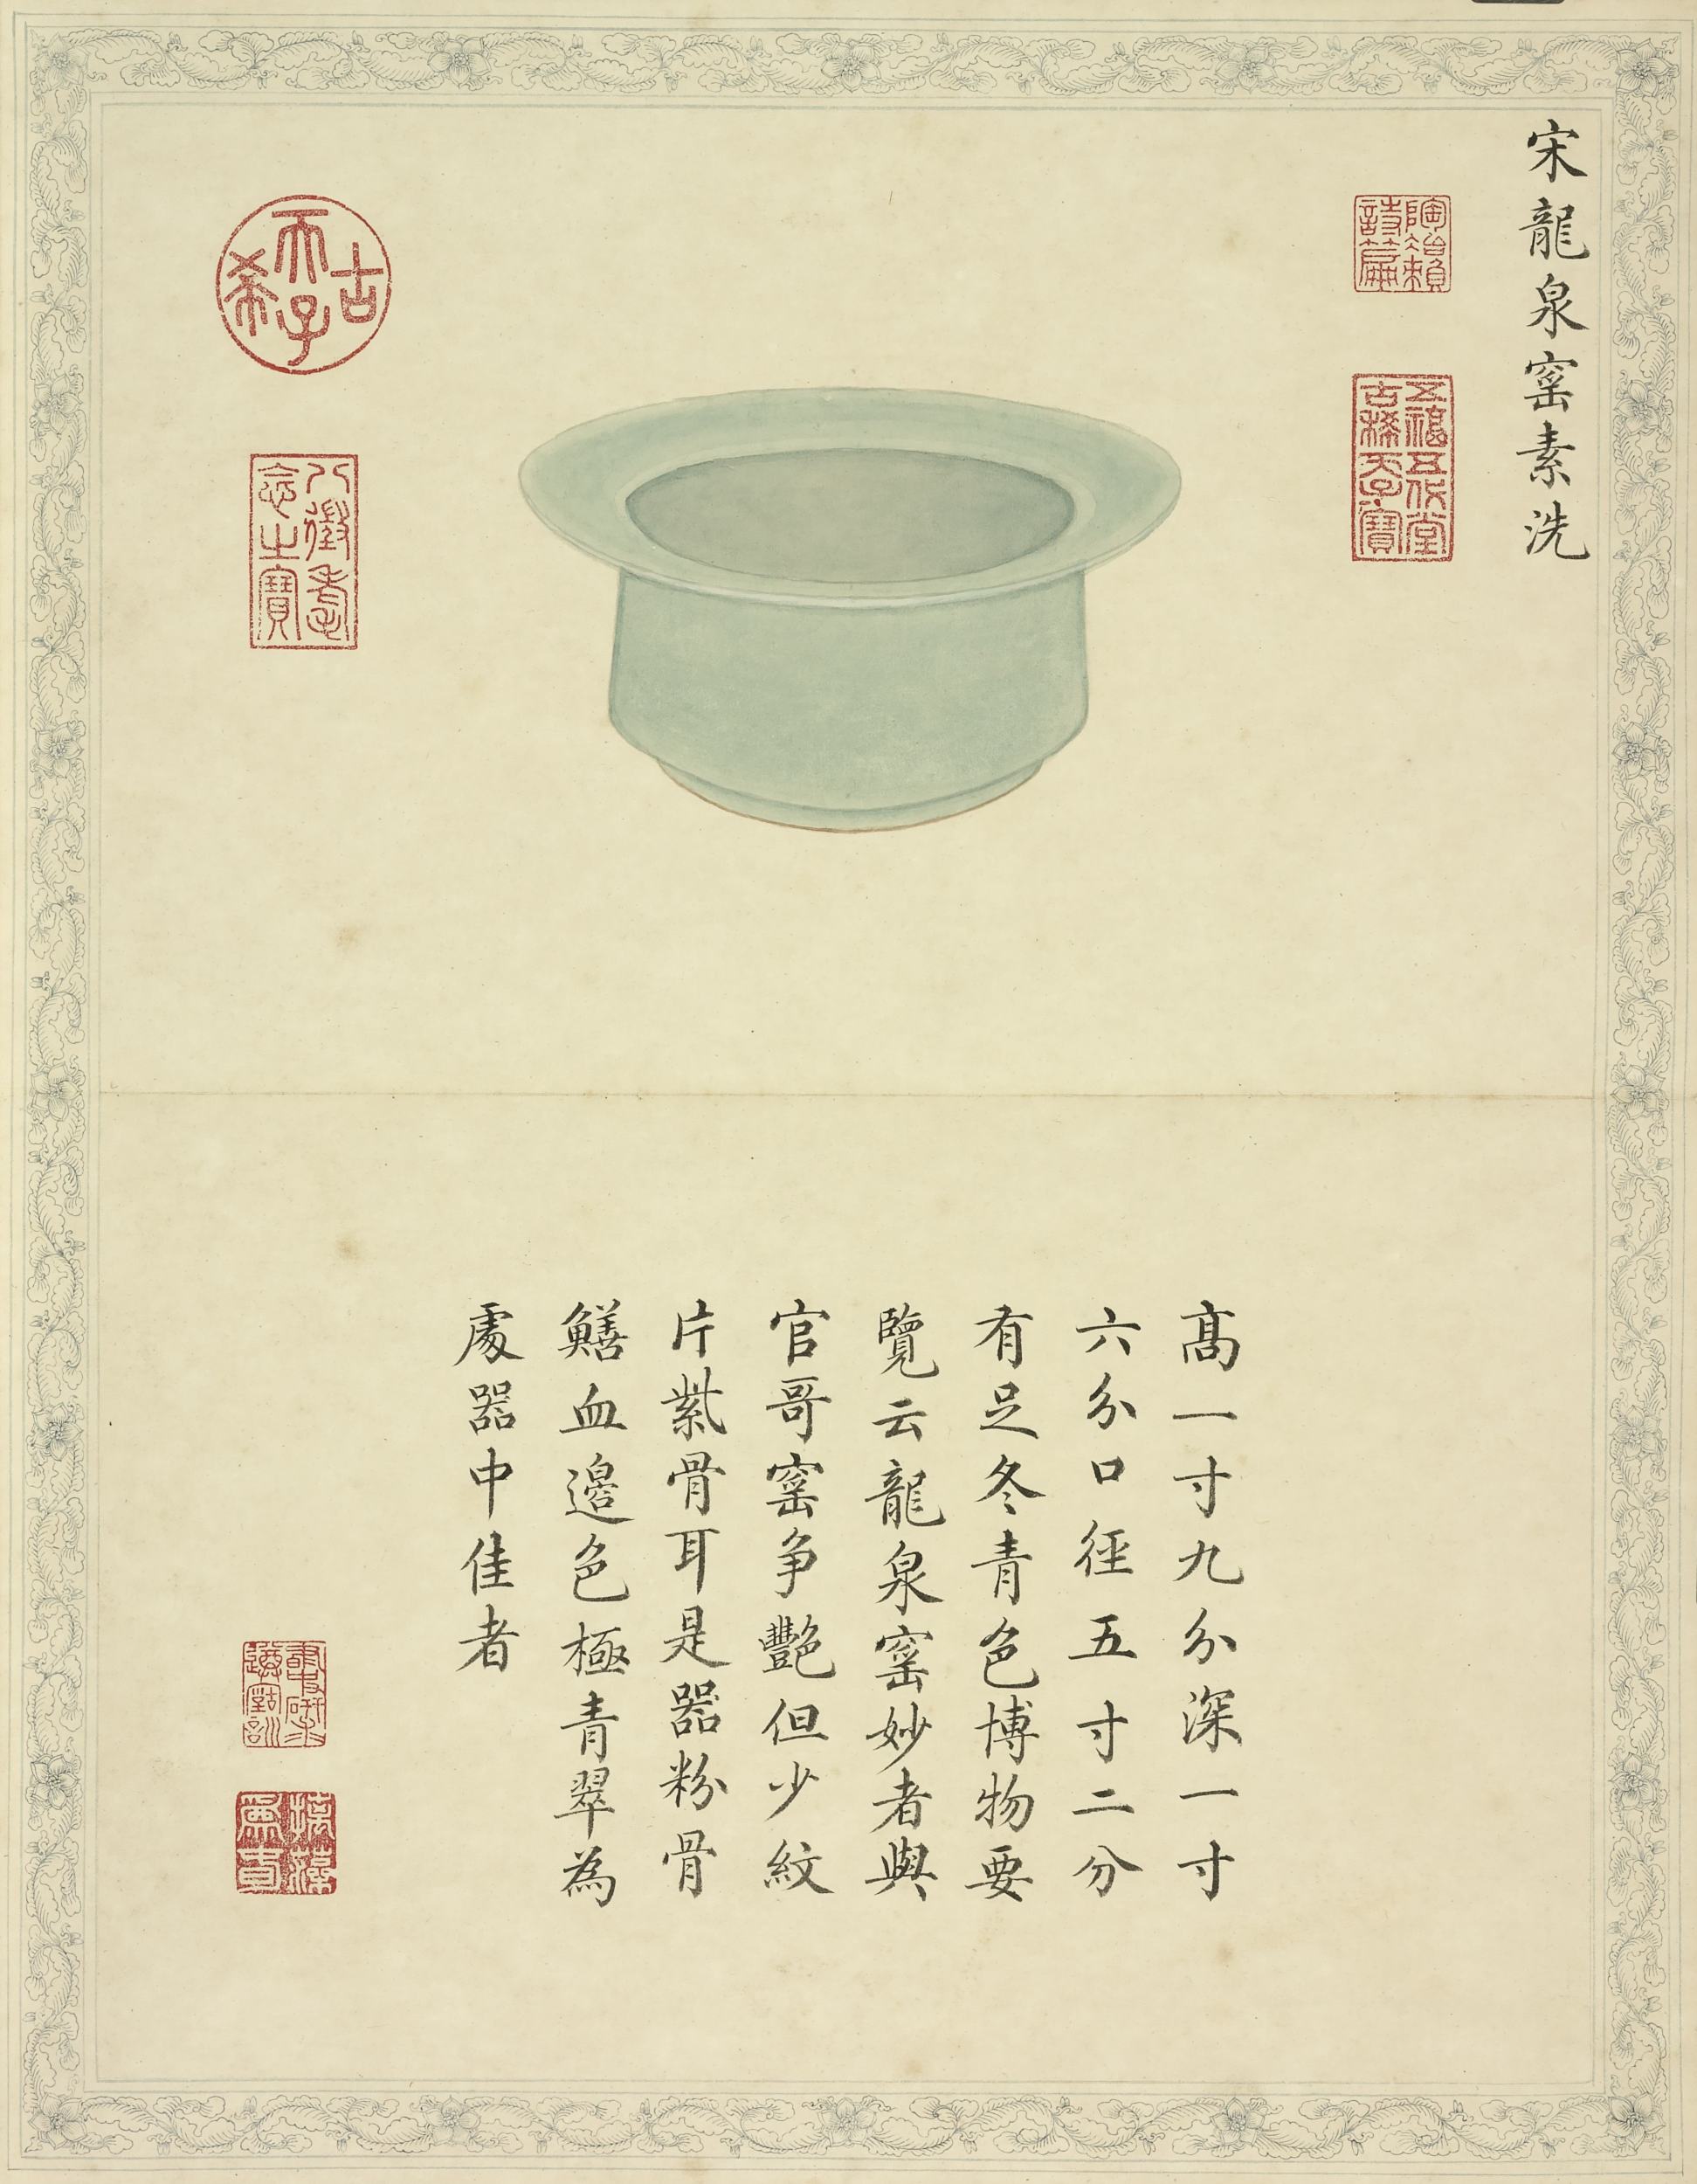 宋龍泉窰素洗
陶冶賴
詩篇
五福五代堂
古稀天子寶
古希天子
八徵耄
念之寶
高一寸九分深一寸
六分口徑五寸二分
有足冬青色博物要
覽云龍泉窰妙者與
官哥窰爭艷但少紋
片紫骨耳是器粉骨
鱔血邊色極青翠為
處器中佳者